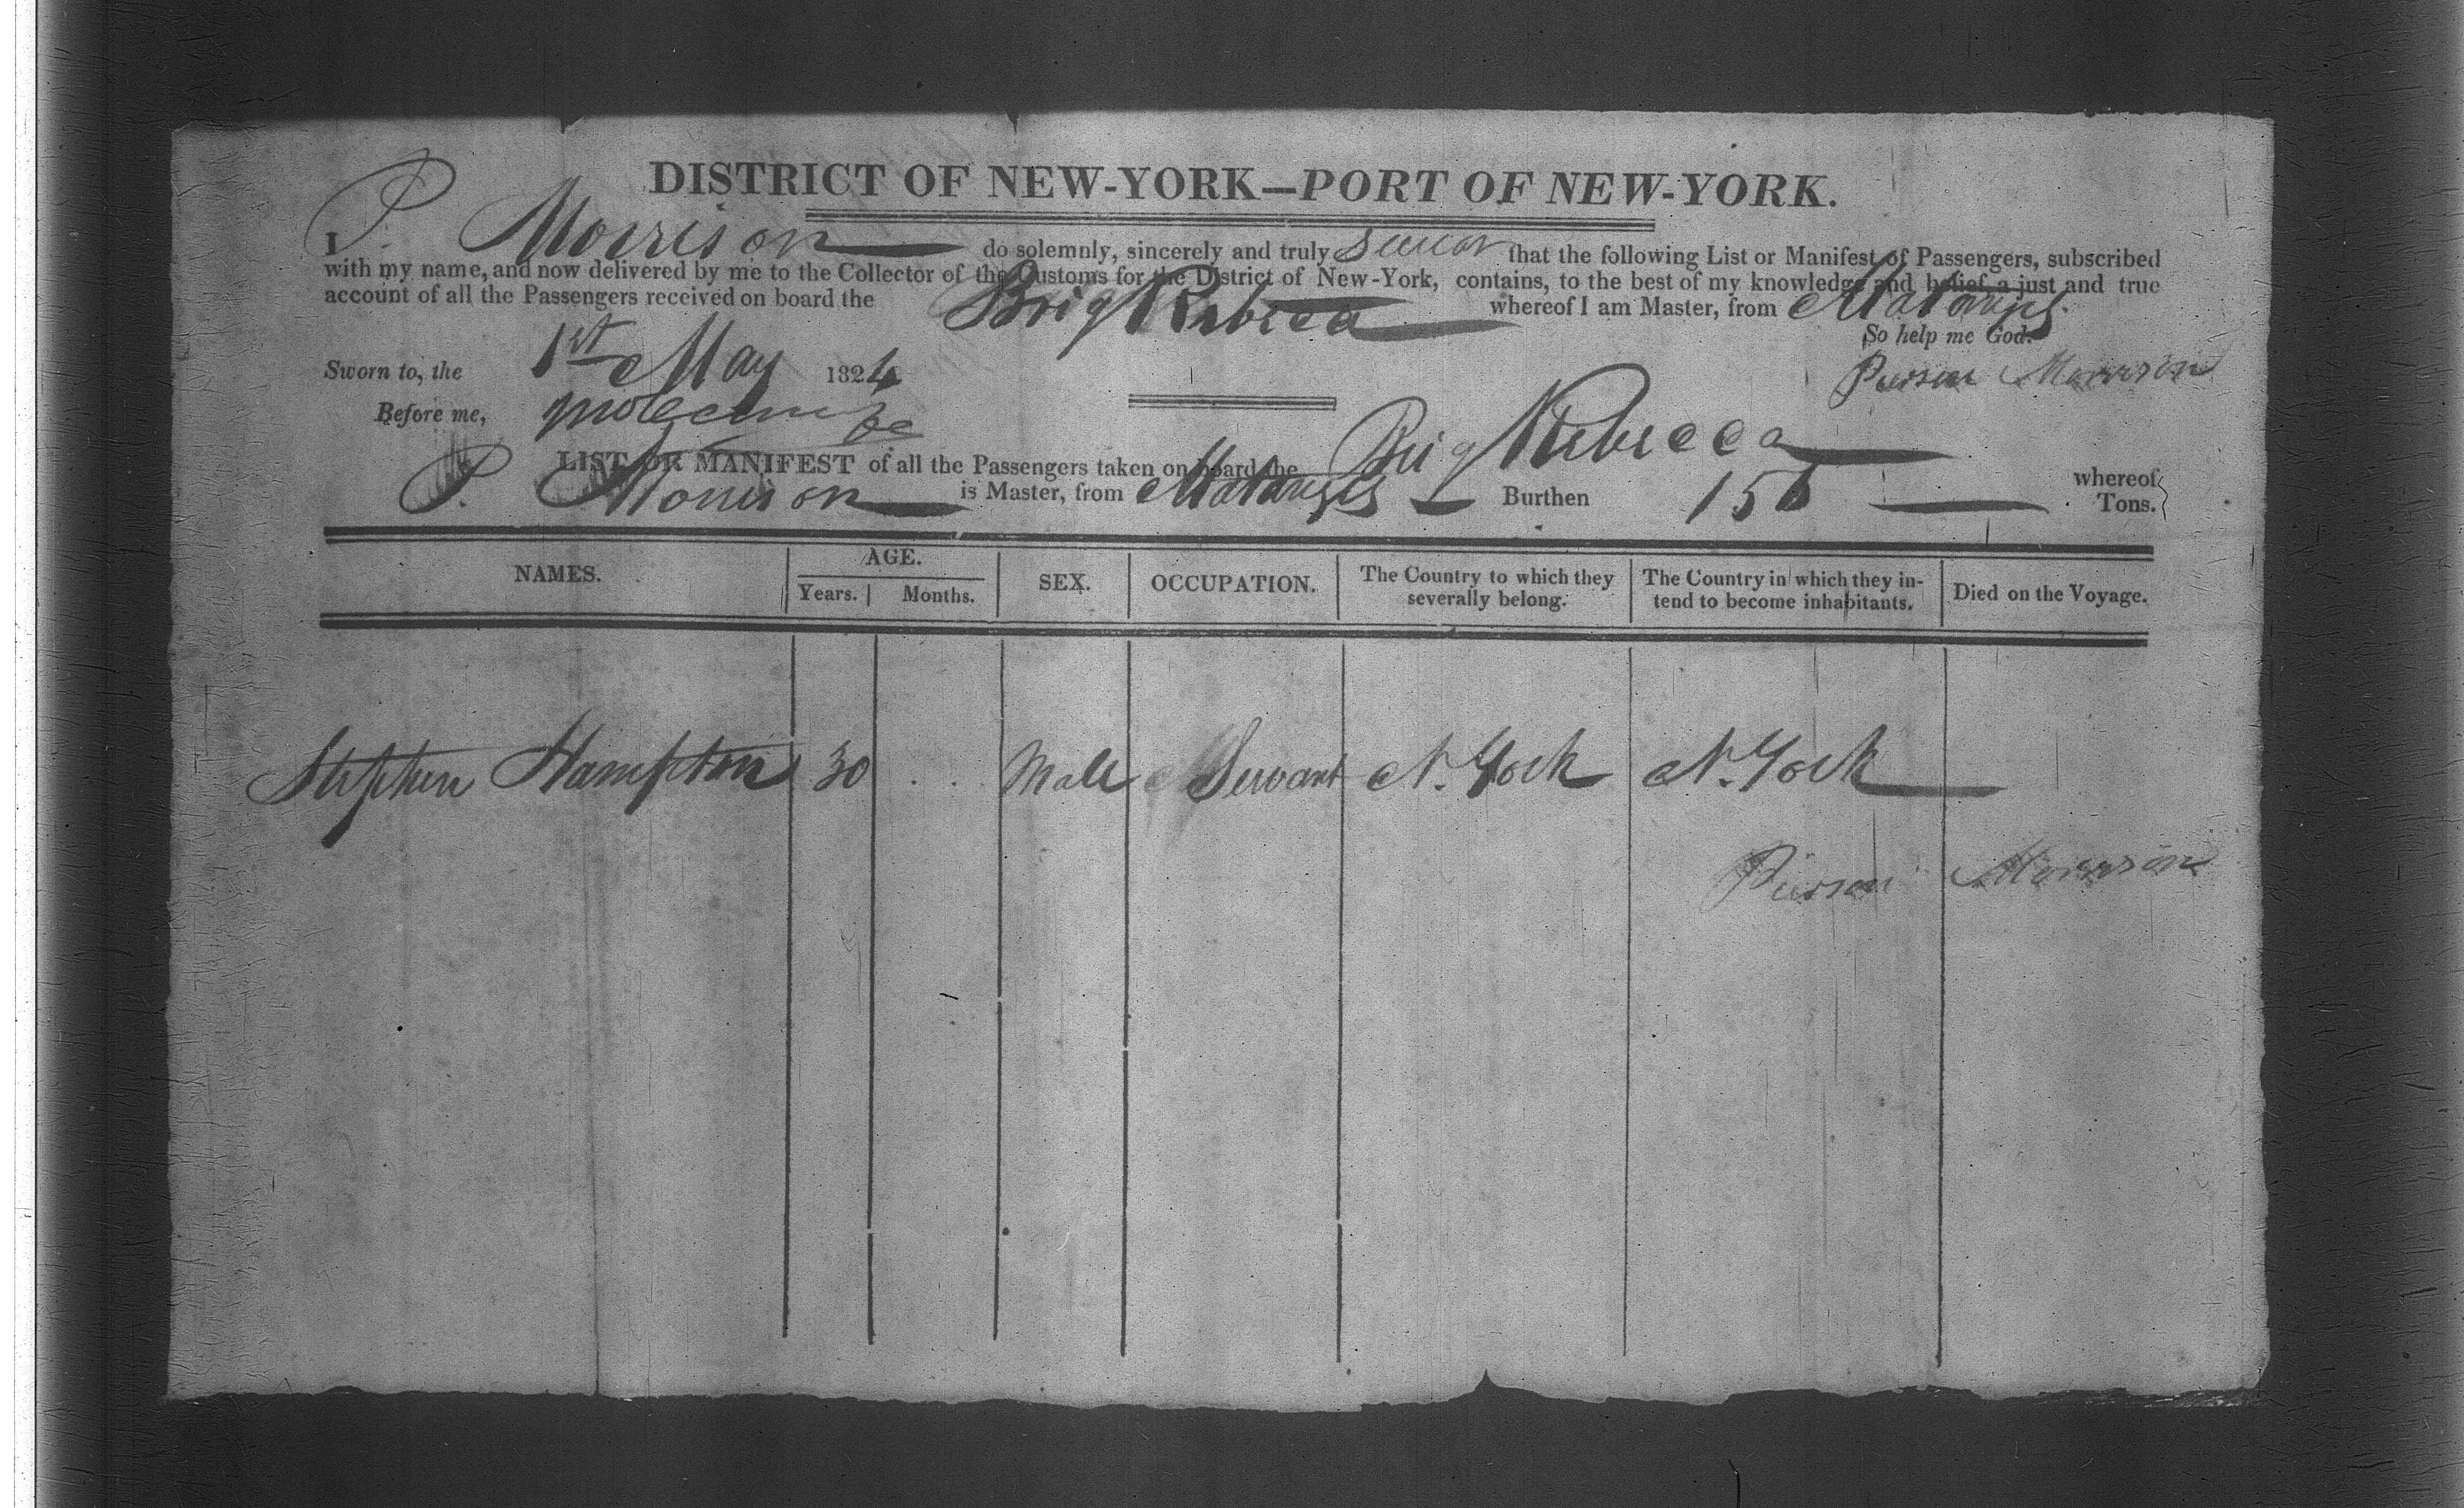 DISTRICT OF NEW-YORK—PORT OF NEW-YORK.
I P. Morrison do solemnly, sincerely and truly swear that the following List or Manifest of Passengers, subscribed
with my name, and now delivered by me to the Collector of the Customs for the District of New-York, contains, to the best of my knowledge and belief, a just and true
account of all the Passengers received on board the Brig Rebecca whereof I am Master, from Matanzas
So help me God.
Sworn to, the 1st May 1824
Pierson Morrison
Before me,
LIST OR MANIFEST of all the Passengers taken on board the Brig Rebecca whereof
P. Morrison is Master, from Matanzas Burthen 156 Tons.
NAMES. AGE. Years. Months. SEX. OCCUPATION. The Country to which they severally belong. The Country in which they intend to become inhabitants. Died on the Voyage.
Stephen Hampton 30 Male Servant N. York N. York
Pierson Morrison